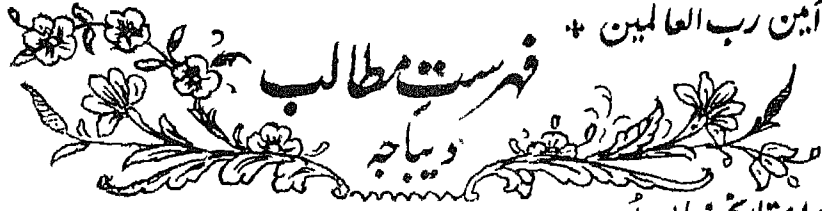 آمین رب العالمین +
فہرست مطالب
دیباچہ